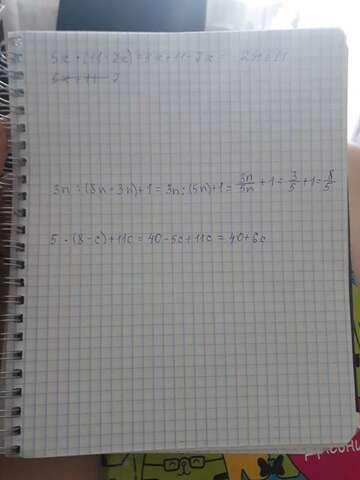 5x + (11 - 7x) = 5x + 11 - 7x = - 2x + 11
3n : (8n - 3n) + 1 = 3n : (5n) + 1 = 3n/5n + 1 = 3/5 + 1 = 8/5
5 · (8 - c) + 11c = 40 - 5c + 11c = 40 + 6c